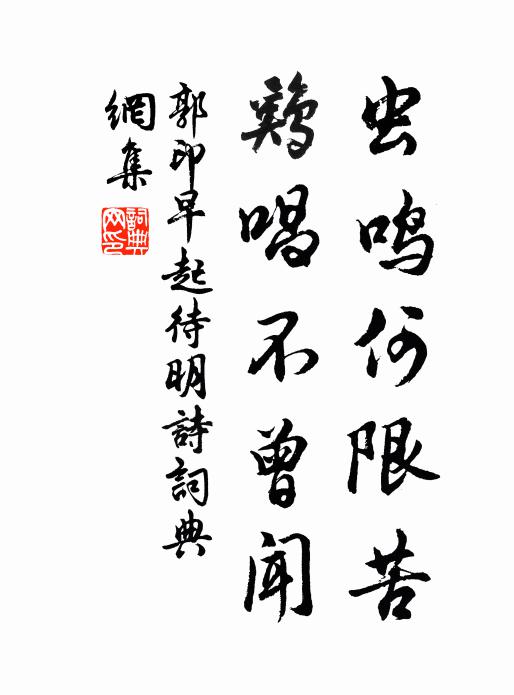 虫鳴何限苦
鷄唱不曾聞
郭印早起待明詩詞典
網集
詞典
网印